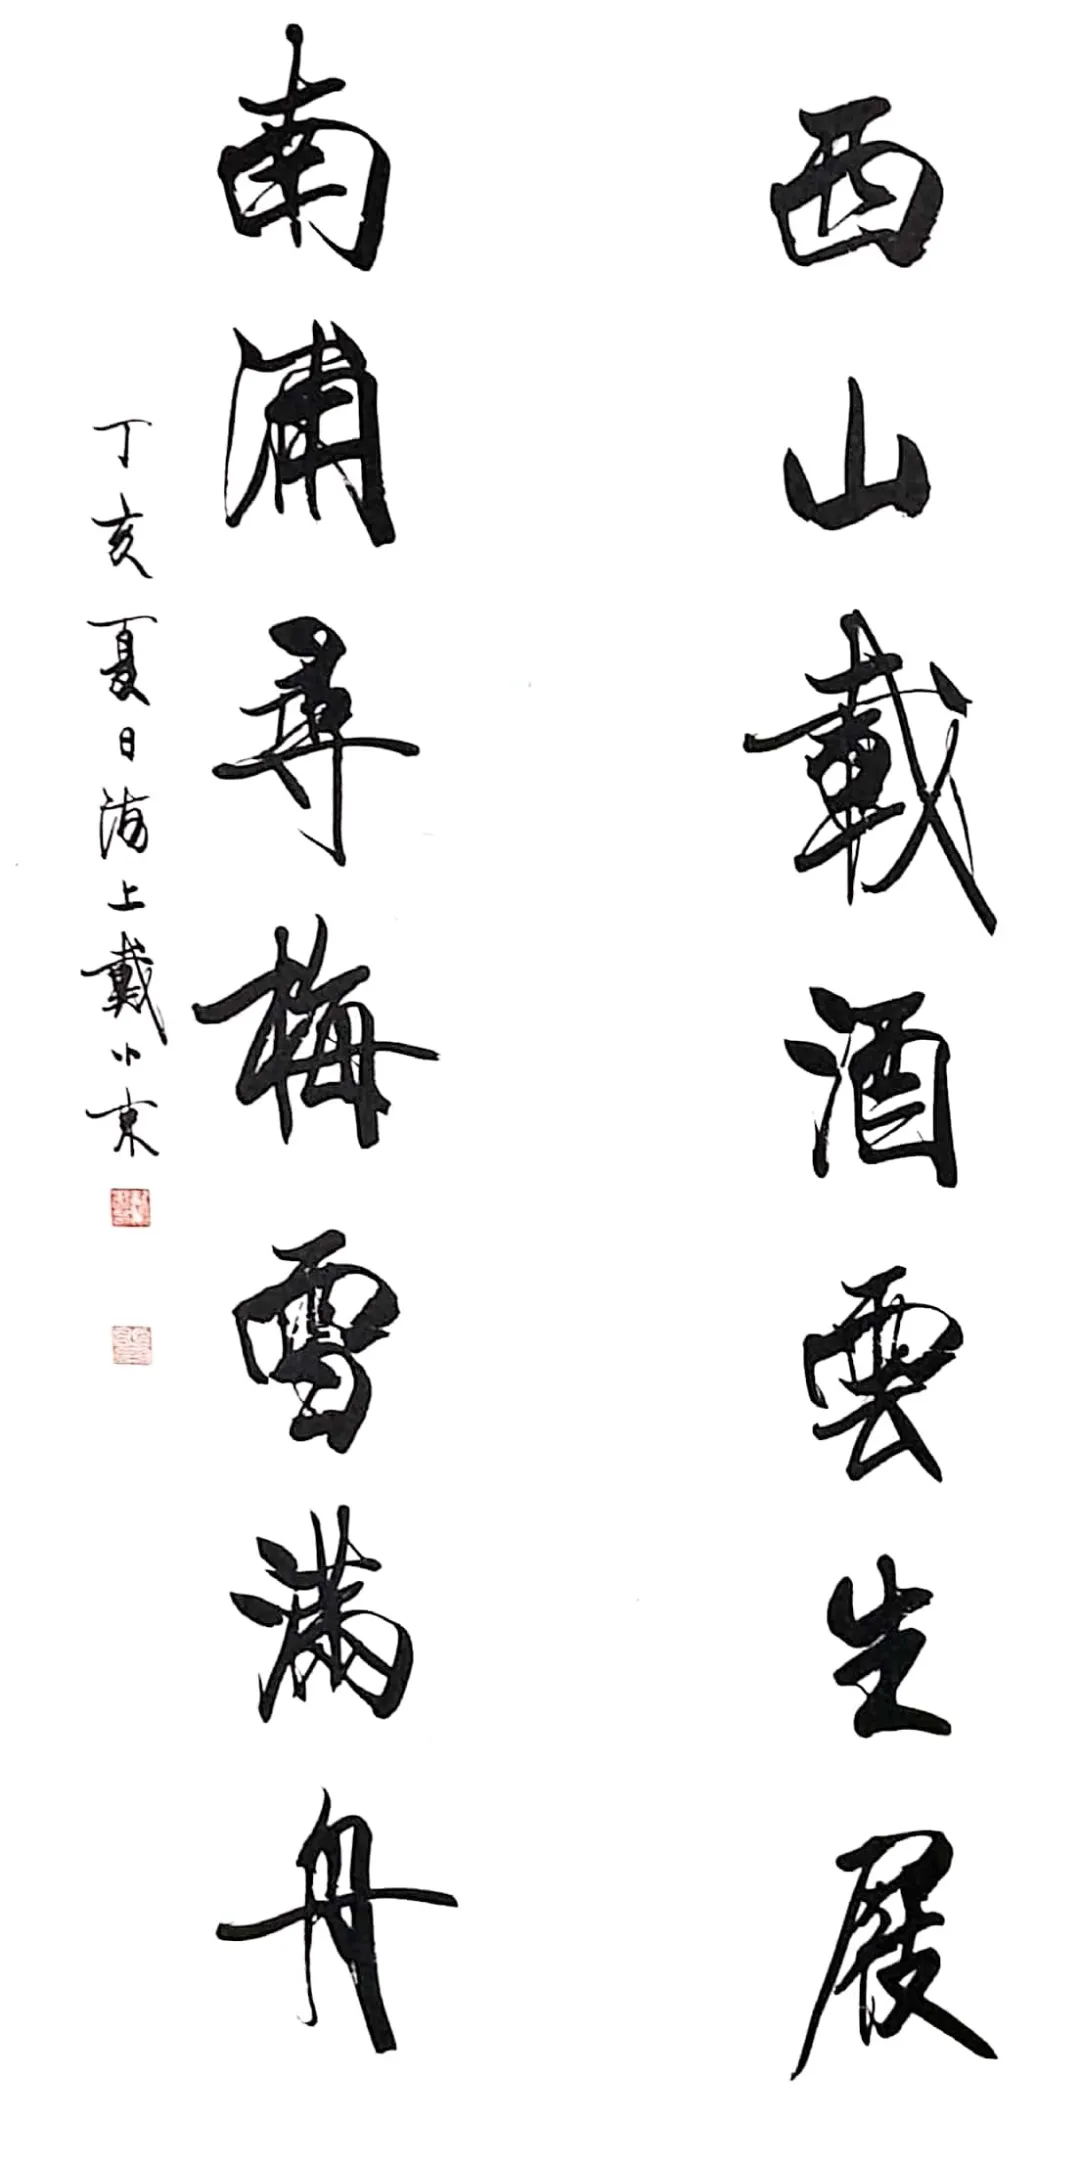 西山載酒雲生屐
南浦尋梅雪滿舟
丁亥夏日海上戴小京